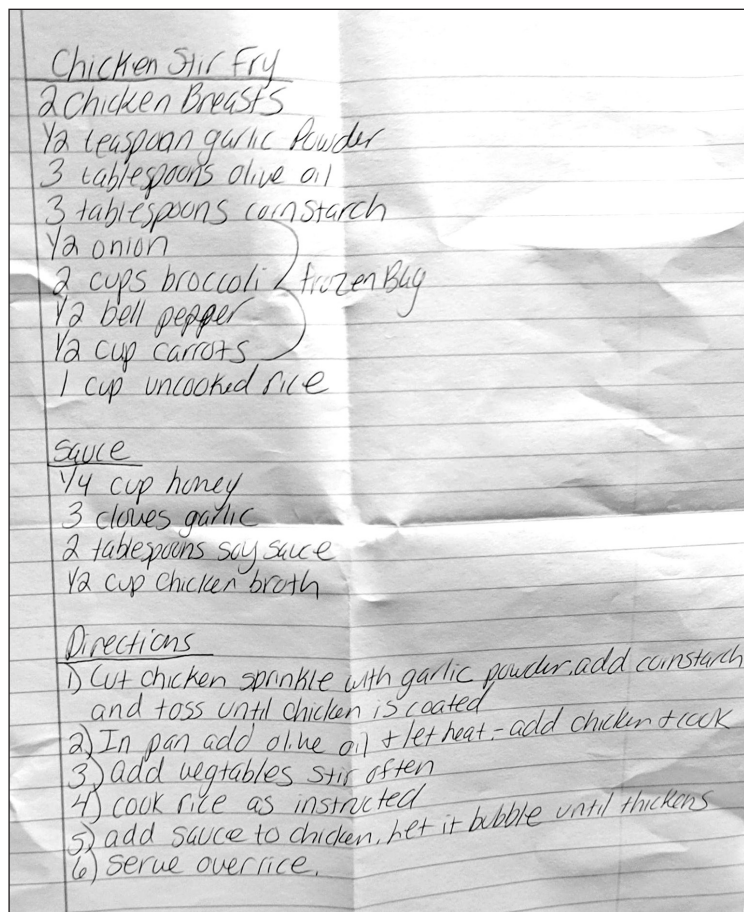 Chicken Stir Fry
2 Chicken Breasts
1/2 teaspoon garlic Powder
3 tablespoons olive oil
3 tablespoons cornstarch
1/2 onion
2 cups broccoli frozen Bag
1/2 bell pepper
1/2 cup carrots
1 cup uncooked rice
Sauce
1/4 cup honey
3 cloves garlic
2 tablespoons soy sauce
1/2 cup chicken broth
Directions
1) Cut chicken sprinkle with garlic powder, add cornstarch
and toss until chicken is coated
2) In pan add olive oil + let heat - add chicken + cook
3) add vegtables stir often
4) cook rice as instructed
5) add sauce to chicken, let it bubble until thickens
6) serve over rice.